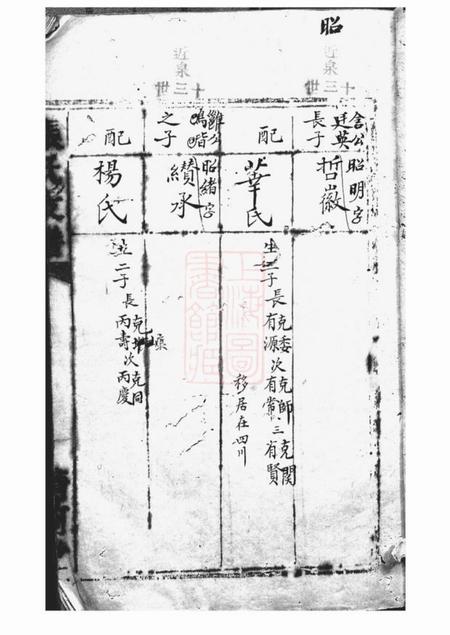 昭
近泉
十三世
含公
廷英
長子
昭明字
哲徽
配
華氏
生三子長克委有源次克師有常三克関有賢
移居在四川
近泉
十三世
雛公
鳴階
之子
昭緒字
纘承
配
楊氏
生二子長克
丙壽次克同丙慶